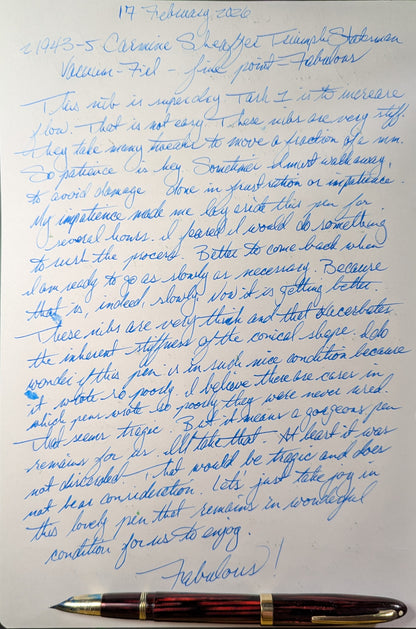 17 February, 2026
~1943-5 Carmine Sheaffer Triumph Statesman
Vacuum-Fil - fine point = Fabulous
This nib is super dry. Task 1 is to increase
flow. That is not easy. These nibs are very stiff.
They take many to move a fraction of a mm.
So patience is key. Sometimes I must walk away,
to avoid damage done in frustration or impatience.
My impatience made me lay aside this pen for
several hours. I feared I would do something
to rush the process. Better to come back when
I am ready to go as slowly as necessary. Because
that is, indeed, slowly. Now it is getting better.
These nibs are very thick and that exacerbates
the inherent stiffness of the conical shape. I do
wonder if this pen is in such nice condition because
it wrote so poorly. I believe there are cases in
which pens wrote so poorly they were never used.
That seems tragic. But it means a gorgeous pen
remains for us. I'll take that. At least it was
not discarded. That would be tragic and does
not bear consideration. Let's just take joy in
this lovely pen that remains in wonderful
condition for us to enjoy.
Fabulous!